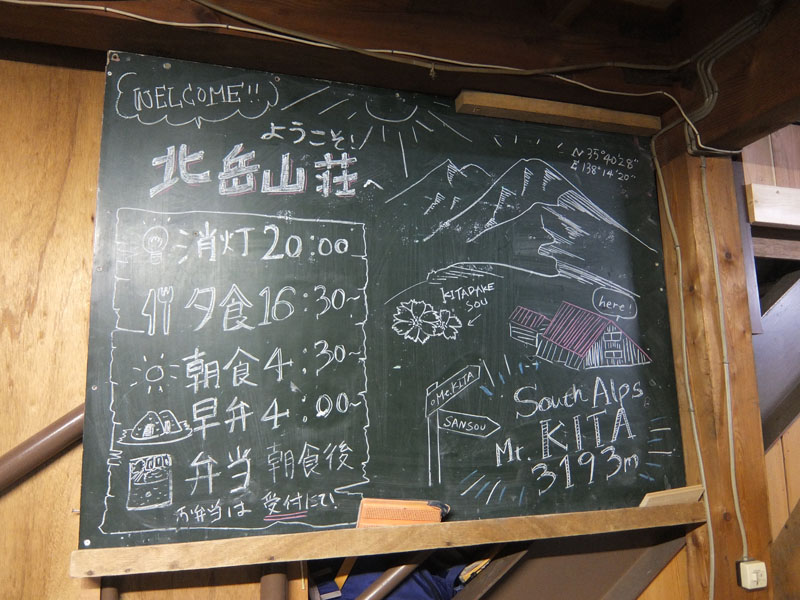 WELCOME!!
ようこそ!
北岳山荘へ
消灯 20:00
夕食 16:30~
朝食 4:30~
早弁 4:00~
弁当 朝食後
お弁当は 受付にて!
N 35°40'28"
E 138°14'20"
KITADAKE
SOU
here!
Mt.KITA
SANSOU
South Alps
Mt. KITA
3193m